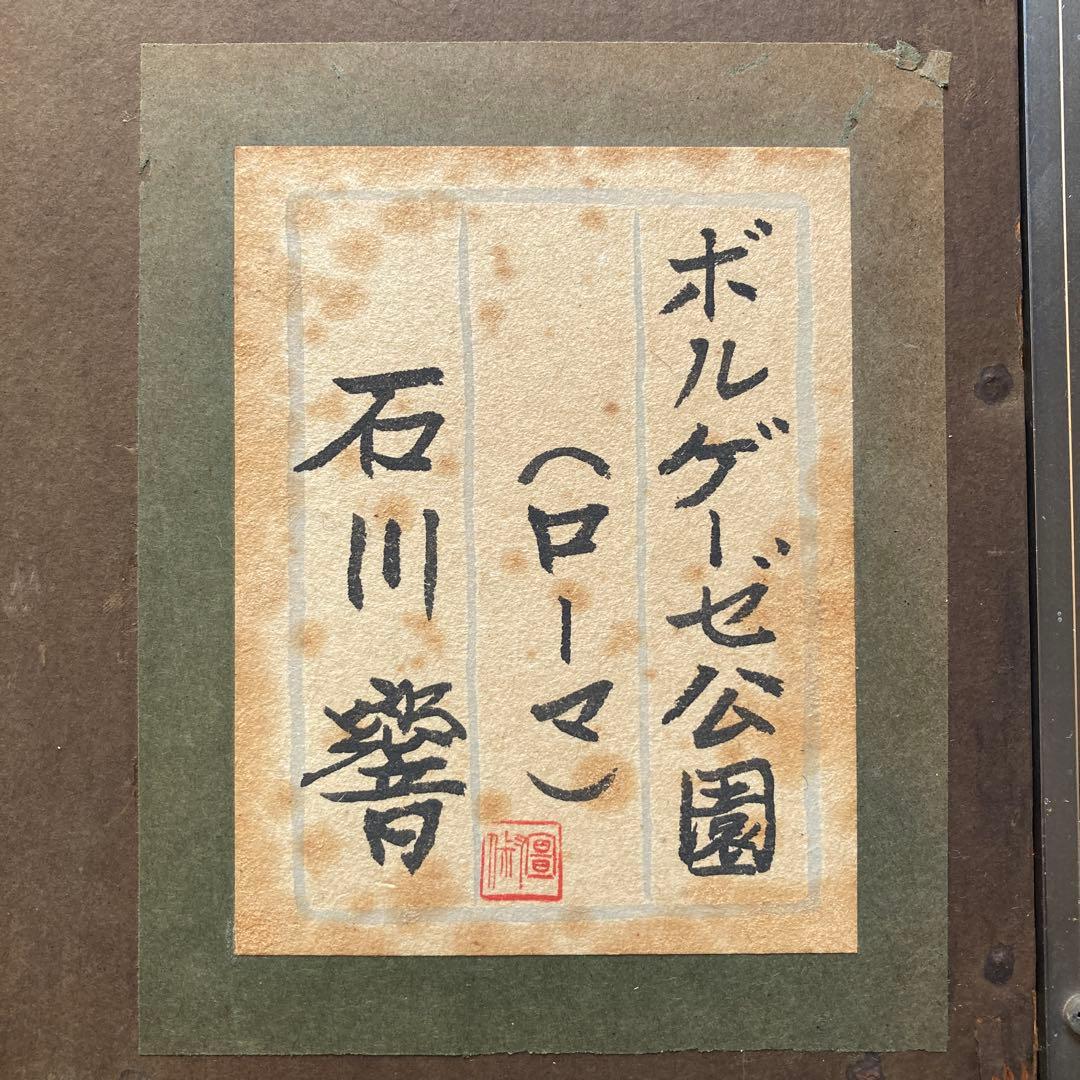 ボルゲーゼ公園
（ローマ）
石川響